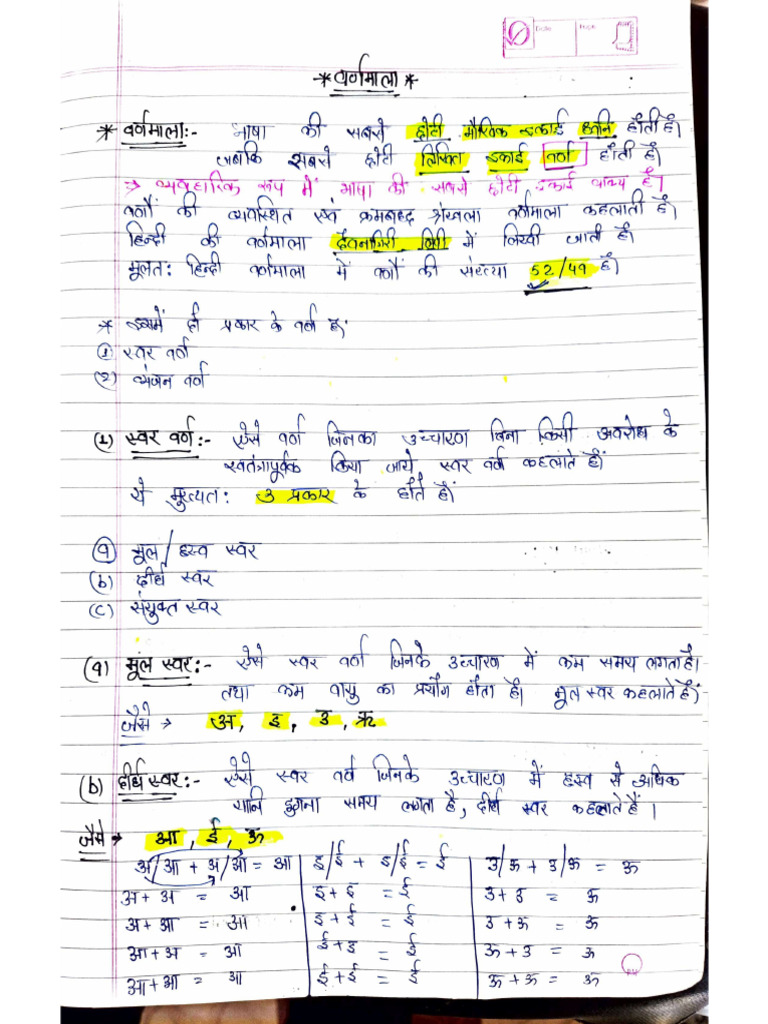 * वर्णमाला *
* वर्णमाला:- भाषा की सबसे छोटी मौखिक इकाई ध्वनि होती है।
जबकि सबसे छोटी लिखित इकाई वर्ण होती है।
→ व्यवहारिक रूप में भाषा की सबसे छोटी इकाई वाक्य है।
वर्णों की व्यवस्थित एवं क्रमबद्ध श्रंखला वर्णमाला कहलाती है।
हिन्दी की वर्णमाला देवनागिरी लिपी में लिखी जाती है।
मूलत: हिन्दी वर्णमाला में वर्णों की संख्या 52/49 है।
* इसमें दो प्रकार के वर्ण हैं
(1) स्वर वर्ण
(2) व्यंजन वर्ण
(1) स्वर वर्ण:- ऐसे वर्ण जिनका उच्चारण बिना किसी अवरोध के
स्वतंत्रापूर्वक किया जाये स्वर वर्ण कहलाते हैं।
ये मुख्यत: 3 प्रकार के होते है।
(a) मूल/ह्रस्व स्वर
(b) दीर्घ स्वर
(c) संयुक्त स्वर
(a) मूल स्वर:- ऐसे स्वर वर्ण जिनके उच्चारण में कम समय लगता है।
तथा कम वायु का प्रयोग होता है। मूल स्वर कहलाते हैं।
जैसे → अ, इ, उ, ऋ
(b) दीर्घ स्वर:- ऐसे स्वर वर्ण जिनके उच्चारण में ह्रस्व से अधिक
यानि दुगना समय लगता है, दीर्घ स्वर कहलाते हैं।
जैसे → आ, ई, ऊ
अ/आ + अ/आ = आ इ/ई + इ/ई = ई उ/ऊ + उ/ऊ = ऊ
अ + अ = आ इ + इ = ई उ + उ = ऊ
अ + आ = आ इ + ई = ई उ + ऊ = ऊ
आ + अ = आ ई + इ = ई ऊ + उ = ऊ
आ + आ = आ ई + ई = ई ऊ + ऊ = ऊ